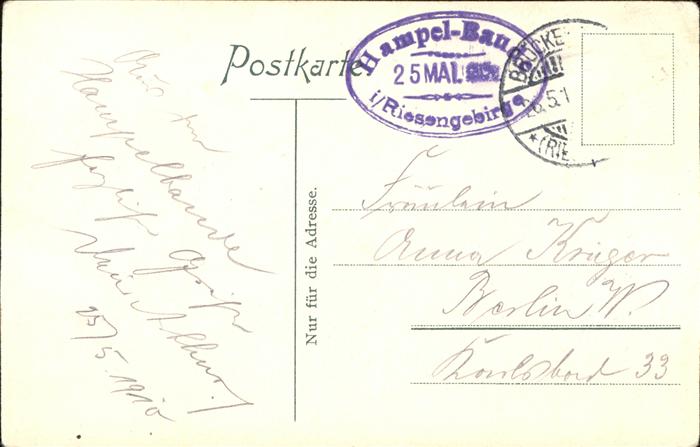 Postkarte
Hampel-Baude
25 MAI
i/Riesengebirge
BRÜCKE
26.5.1
*(RIE
Aus der
Hampelbaude
25/5. 1910
Nur für die Adresse.
Fräulein
Anna Krüger
Berlin W.
Karlsbad 33